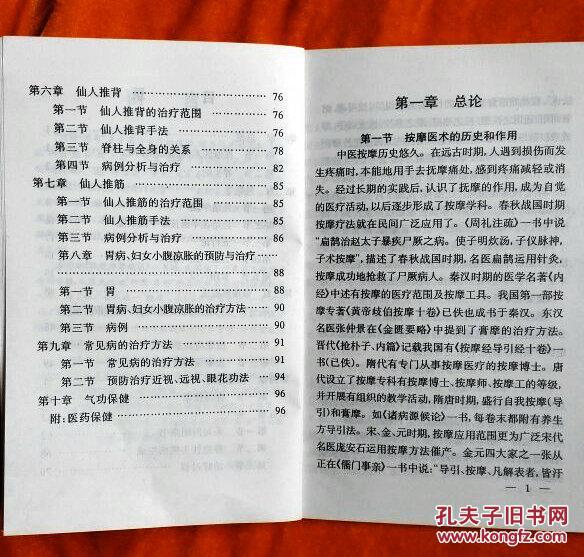 第六章 仙人推背 …………………… 76
第一节 仙人推背的治疗范围 ………… 76
第二节 仙人推背手法 ………………… 76
第三节 脊柱与全身的关系 …………… 78
第四节 病例分析与治疗 ……………… 82
第七章 仙人推筋 …………………… 85
第一节 仙人推筋的治疗范围 ………… 85
第二节 仙人推筋手法 ………………… 85
第三节 病例分析与治疗 ……………… 86
第八章 胃病、妇女小腹凉胀的预防与治疗 ……
…………………………………… 88
第一节 胃 …………………………… 88
第二节 胃病、妇女小腹凉胀的治疗方法 … 90
第三节 病例 ………………………… 90
第九章 常见病的治疗方法 ………… 91
第一节 常见病的治疗方法 ………… 91
第二节 预防治疗近视、远视、眼花功法 … 94
第十章 气功保健 …………………… 96
附:医药保健 ………………………… 96
第一章 总论
第一节 按摩医术的历史和作用
中医按摩历史悠久。在远古时期,人遇到损伤而发
生疼痛时,本能地用手去抚摩痛处,感到疼痛减轻或消
失。经过长期的实践后,认识了抚摩的作用,成为自觉
的医疗活动,以后逐步形成了按摩学科。春秋战国时期
按摩疗法就在民间广泛应用了。《周礼注疏》一书中说
“扁鹊治赵太子暴疾尸厥之病。使子明炊汤,子仪脉神,
子术按摩”,描述了春秋战国时期,名医扁鹊运用针灸、
按摩成功地抢救了尸厥病人。秦汉时期的医学名著《内
经》中述有按摩的医疗范围及按摩工具。我国第一部按
摩专著《黄帝歧伯按摩十卷》已佚也成书于秦汉。东汉
名医张仲景在《金匮要略》中提到了膏摩的治疗方法。
晋代《抢朴子、内篇》记载我国有《按摩经导引经十卷》一
书(已佚)。隋代有专门从事按摩医疗的按摩博士。唐
代设立了按摩专科有按摩博士、按摩师、按摩工的等级,
并开展有组织的教学活动,隋唐时期,盛行自我按摩(导
引)和膏摩。如《诸病源候论》一书,每卷末都附有养生
方导引法。宋、金、元时期,按摩应用范围更为广泛宋代
名医庞安石运用按摩方法催产。金元四大家之一张从
正在《儒门事亲》一书中说:“导引、按摩、凡解表者,皆汗
— 1 —
孔夫子旧书网
www.kongfz.com